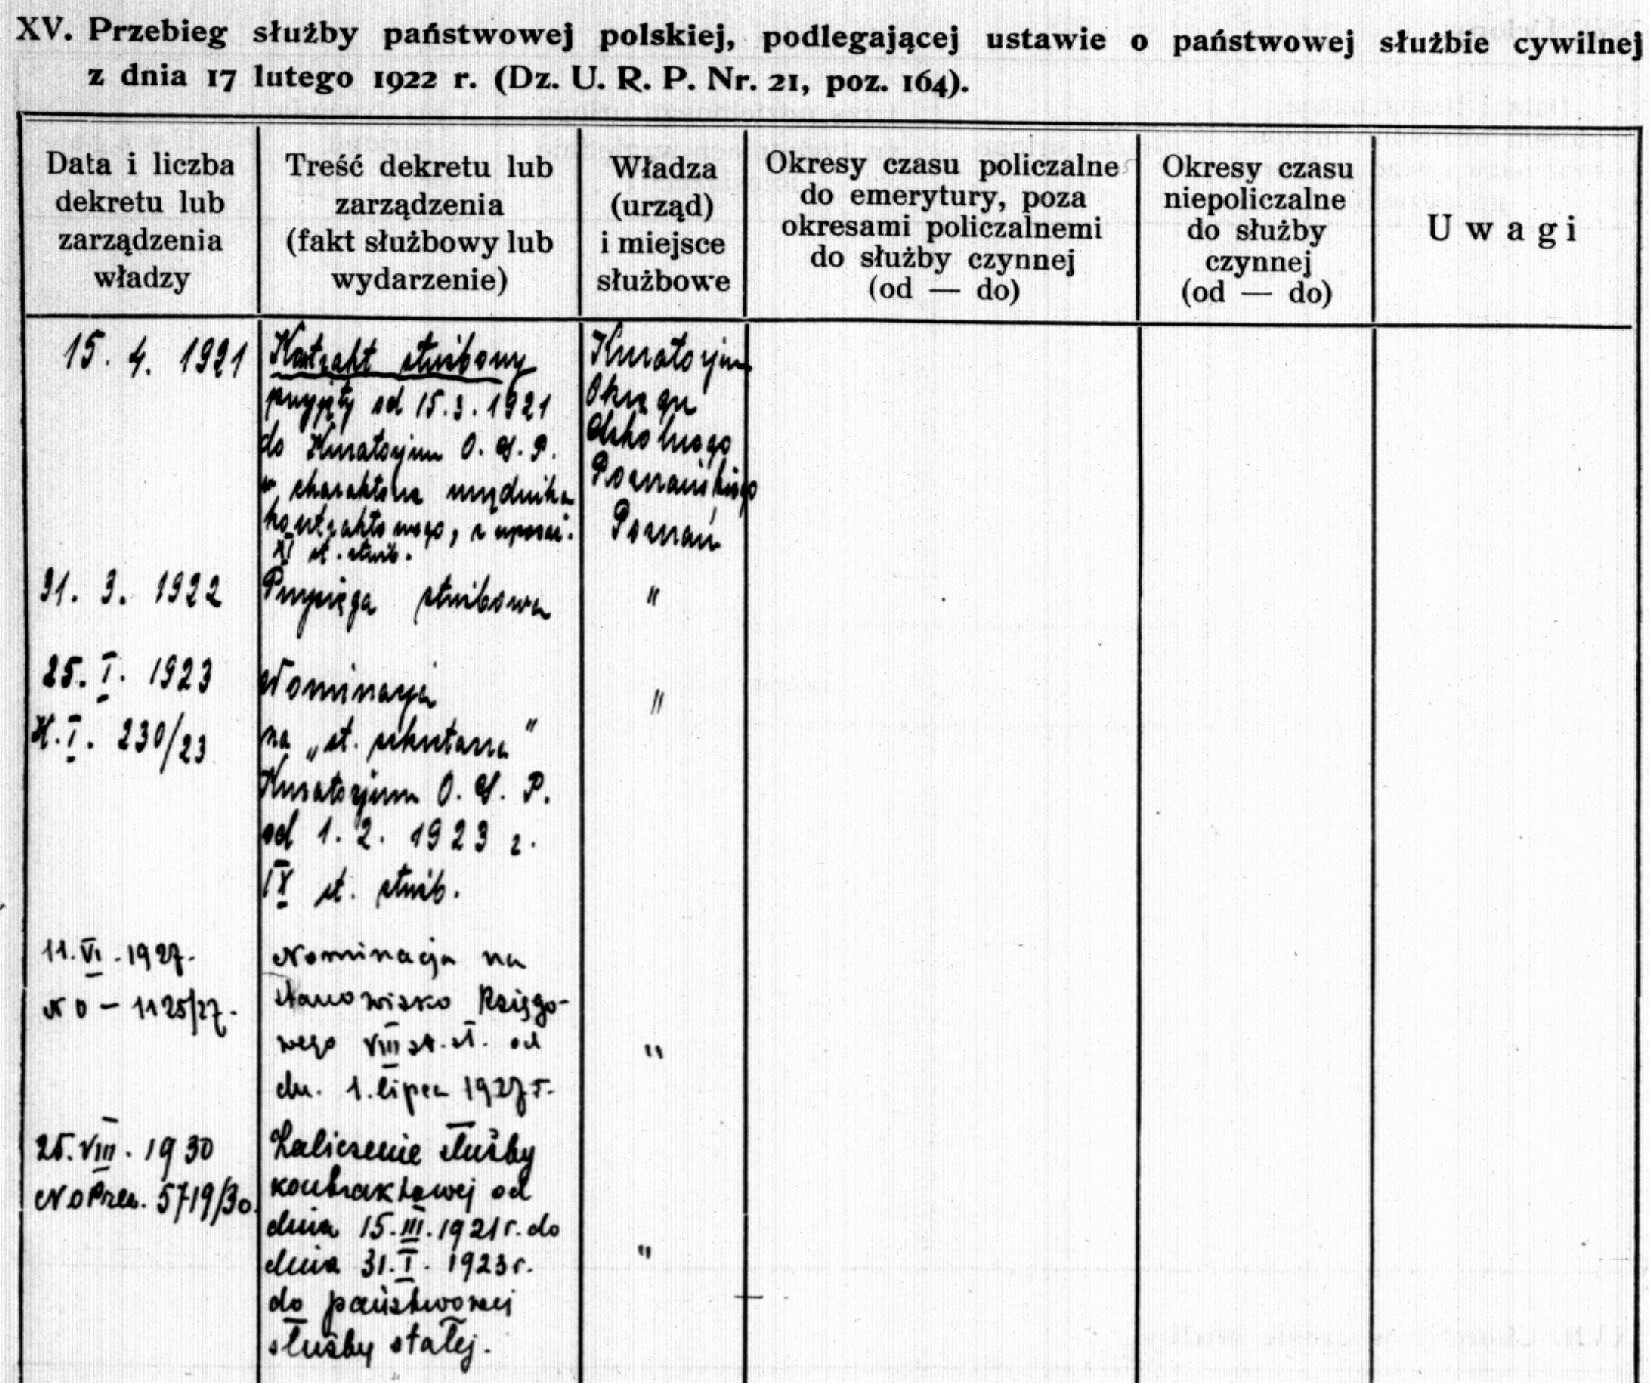 XV. Przebieg służby państwowej polskiej, podlegającej ustawie o państwowej służbie cywilnej
z dnia 17 lutego 1922 r. (Dz. U. R. P. Nr. 21, poz. 164).
Data i liczba
dekretu lub
zarządzenia
władzy
Treść dekretu lub
zarządzenia
(fakt służbowy lub
wydarzenie)
Władza
(urząd)
i miejsce
służbowe
Okresy czasu policzalne
do emerytury, poza
okresami policzalnemi
do służby czynnej
(od — do)
Okresy czasu
niepoliczalne
do służby
czynnej
(od — do)
Uwagi
15. 4. 1921
Kontrakt służbowy
przyjęty od 15.3.1921
do Kuratorjum O. S. P.
w charakterze urzędnika
kontraktowego, z uposaż.
XI st. służb.
Kuratorjum
Okręgu
Szkolnego
Poznańskiego
Poznań
31. 3. 1922
Przysięga służbowa
"
25. I. 1923
K. I. 230/23
Nominacja
na „st. sekretarza"
Kuratorjum O. S. P.
od 1. 2. 1923 r.
IX st. służb.
"
11. VI. 1927.
No - 1125/27.
Nominacja na
stanowisko Księgo-
wego VIII st. sł. od
dn. 1. lipca 1927 r.
"
25. VIII. 1930
No Prez. 5719/30.
Zaliczenie służby
kontraktowej od
dnia 15. III. 1921 r. do
dnia 31. I. 1923 r.
do państwowej
służby stałej.
"